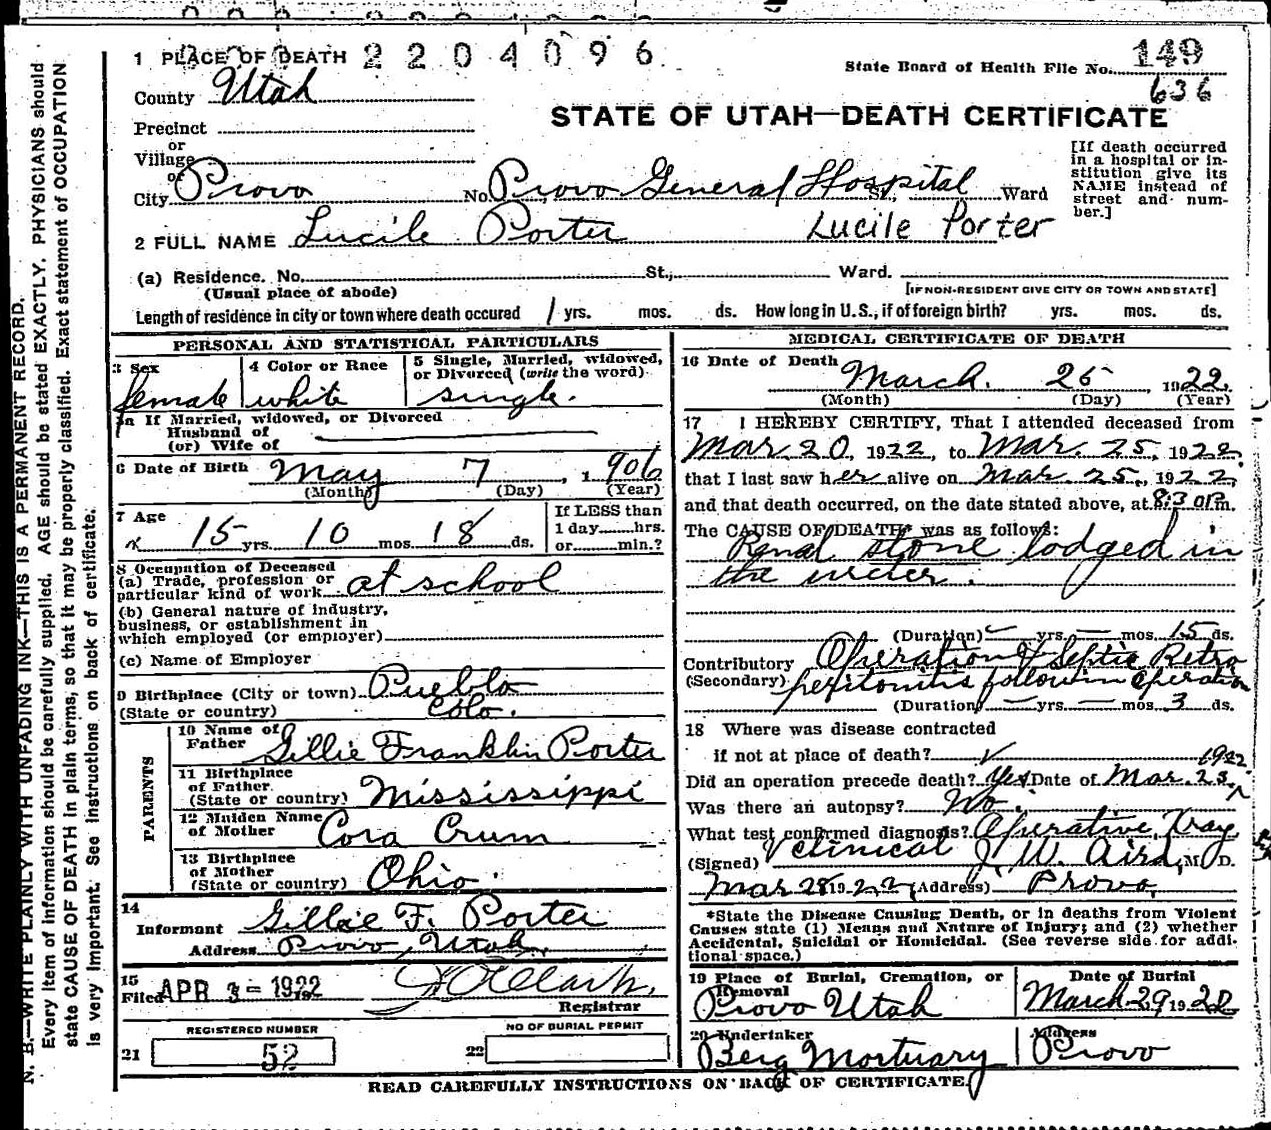 1 PLACE OF DEATH 2 2 0 4 0 9 6
State Board of Health File No. 149
636
County Utah
STATE OF UTAH—DEATH CERTIFICATE
Precinct
or
Village
or
City Provo No. Provo General Hospital St., Ward
[If death occurred
in a hospital or in-
stitution give its
NAME instead of
street and num-
ber.]
2 FULL NAME Lucile Porter Lucile Porter
(a) Residence. No. St., Ward.
(Usual place of abode) [IF NON-RESIDENT GIVE CITY OR TOWN AND STATE]
Length of residence in city or town where death occured 1 yrs. mos. ds. How long in U.S., if of foreign birth? yrs. mos. ds.
PERSONAL AND STATISTICAL PARTICULARS
3 Sex female
4 Color or Race white
5 Single, Married, widowed,
or Divorced (write the word)
single.
5a If Married, widowed, or Divorced
Husband of
(or) Wife of
6 Date of Birth May 7, 1906
(Month) (Day) (Year)
7 Age 15 yrs. 10 mos. 18 ds.
If LESS than
1 day hrs.
or min.?
8 Occupation of Deceased
(a) Trade, profession or
particular kind of work at school
(b) General nature of industry,
business, or establishment in
which employed (or employer)
(c) Name of Employer
9 Birthplace (City or town) Pueblo
(State or country) Colo.
PARENTS
10 Name of
Father Gillie Franklin Porter
11 Birthplace
of Father
(State or country) Mississippi
12 Maiden Name
of Mother Cora Crum
13 Birthplace
of Mother
(State or country) Ohio.
14
Informant Gillie F. Porter
Address Provo, Utah.
15
Filed APR 3 - 1922
Registrar
REGISTERED NUMBER
21 52
NO OF BURIAL PERMIT
22
MEDICAL CERTIFICATE OF DEATH
16 Date of Death
March. 25, 1922.
(Month) (Day) (Year)
17 I HEREBY CERTIFY, That I attended deceased from
Mar. 20, 1922, to Mar. 25, 1922
that I last saw her alive on Mar. 25, 1922,
and that death occurred, on the date stated above, at 8:30 P.m.
The CAUSE OF DEATH* was as follows:
Renal stone lodged in
the ureter.
(Duration) yrs. — mos. 15 ds.
Contributory Operation & Septic Retro
(Secondary) peritonitis following operation
(Duration) — yrs. — mos. 3 ds.
18 Where was disease contracted
if not at place of death?
1922
Did an operation precede death? Yes Date of Mar. 23,
Was there an autopsy? No.
What test confirmed diagnosis? Operative, Xray
& clinical
(Signed) J. W. Aird, M. D.
Mar 28 1922 (Address) Provo,
*State the Disease Causing Death, or in deaths from Violent
Causes state (1) Means and Nature of Injury; and (2) whether
Accidental, Suicidal or Homicidal. (See reverse side for addi-
tional space.)
19 Place of Burial, Cremation, or
Removal
Provo Utah
Date of Burial
March 29 1922
20 Undertaker
Berg Mortuary
Address
Provo
READ CAREFULLY INSTRUCTIONS ON BACK OF CERTIFICATE.
N. B.—WRITE PLAINLY WITH UNFADING INK—THIS IS A PERMANENT RECORD.
Every item of information should be carefully supplied. AGE should be stated EXACTLY. PHYSICIANS should
state CAUSE OF DEATH in plain terms, so that it may be properly classified. Exact statement of OCCUPATION
is very important. See instructions on back of certificate.